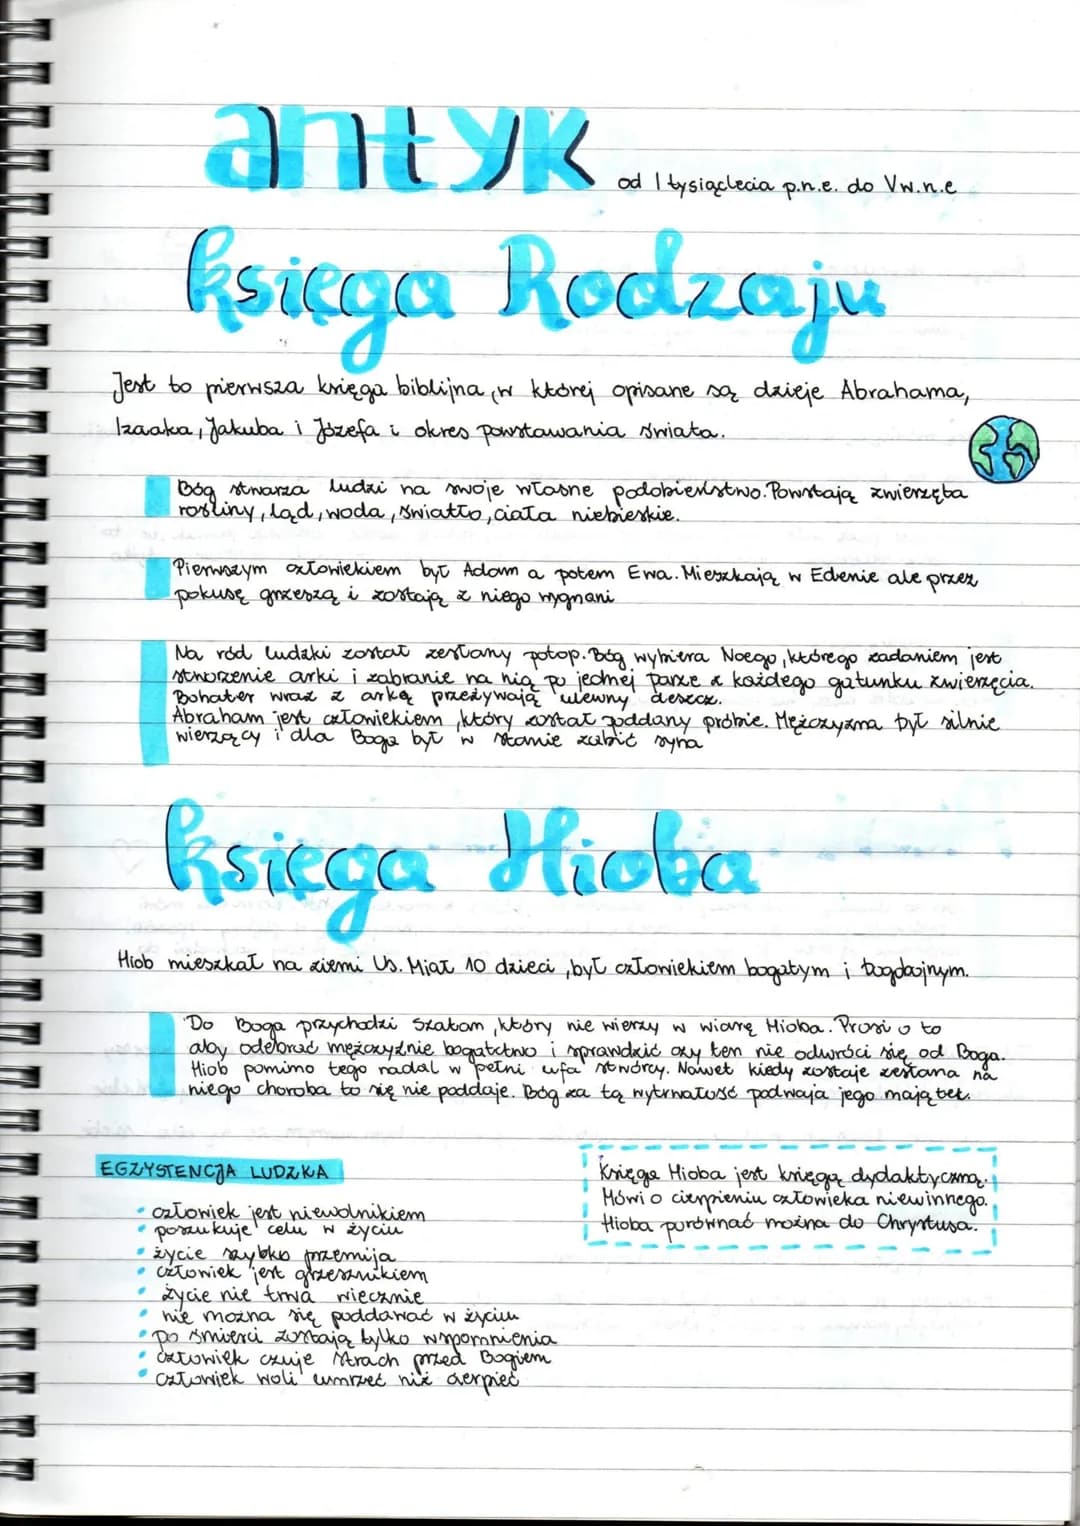 antyk
od I tysiąclecia p.n.e. do V w.n.e
księga Rodzaju
Jest to pierwsza księga biblijna, w której opisane są dzieje Abrahama,
Izaaka, Jakuba i Józefa i okres powstawania świata.
Bóg stwarza ludzi na swoje własne podobieństwo. Powstają zwierzęta
rośliny, ląd, woda, światło, ciała niebieskie.
Pierwszym człowiekiem był Adam a potem Ewa. Mieszkają w Edenie ale przez
pokusę grzeszą i zostają z niego wygnani
Na ród ludzki został zesłany potop. Bóg wybiera Noego, którego zadaniem jest
stworzenie arki i zabranie na nią po jednej parze z każdego gatunku zwierzęcia.
Bohater wraz z arką przeżywają ulewny deszcz.
Abraham jest człowiekiem, który został poddany próbie. Mężczyzna był silnie
wierzący i dla Boga był w stanie zabić syna
księga Hioba
Hiob mieszkał na ziemi Us. Miał 10 dzieci, był człowiekiem bogatym i bogobojnym.
Do Boga przychodzi Szatan, który nie wierzy w wiarę Hioba. Prosi o to
aby odebrać mężczyźnie bogatctwo i sprawdzić czy ten nie odwróci się od Boga.
Hiob pomimo tego nadal w pełni ufa stwórcy. Nawet kiedy zostaje zesłana na
niego choroba to się nie poddaje. Bóg za tą wytrwałość podwaja jego majątek.
EGZYSTENCJA LUDZKA
• człowiek jest niewolnikiem
• poszukuje celu w życiu
• życie szybko przemija
• człowiek jest grzesznikiem
• życie nie trwa wiecznie
• nie można się poddawać w życiu
• po śmierci zostają tylko wspomnienia
• człowiek czuje strach przed Bogiem
• człowiek woli umrzeć niż cierpieć
Księga Hioba jest księgą dydaktyczną.
Mówi o cierpieniu człowieka niewinnego.
Hioba porównać można do Chrystusa.